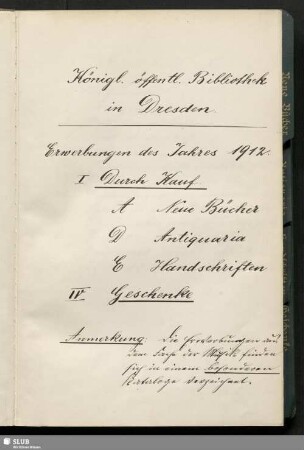 Königl. öffentl. Bibliothek
in Dresden.
Erwerbungen des Jahres 1912.
I Durch Kauf
A Neue Bücher
D Antiquaria
E Handschriften
IV Geschenke
Anmerkung: Die Erwerbungen aus
dem Fache der Musik finden
sich in einem besonderen
Kataloge verzeichnet.
SLUB
Wir führen Wissen.